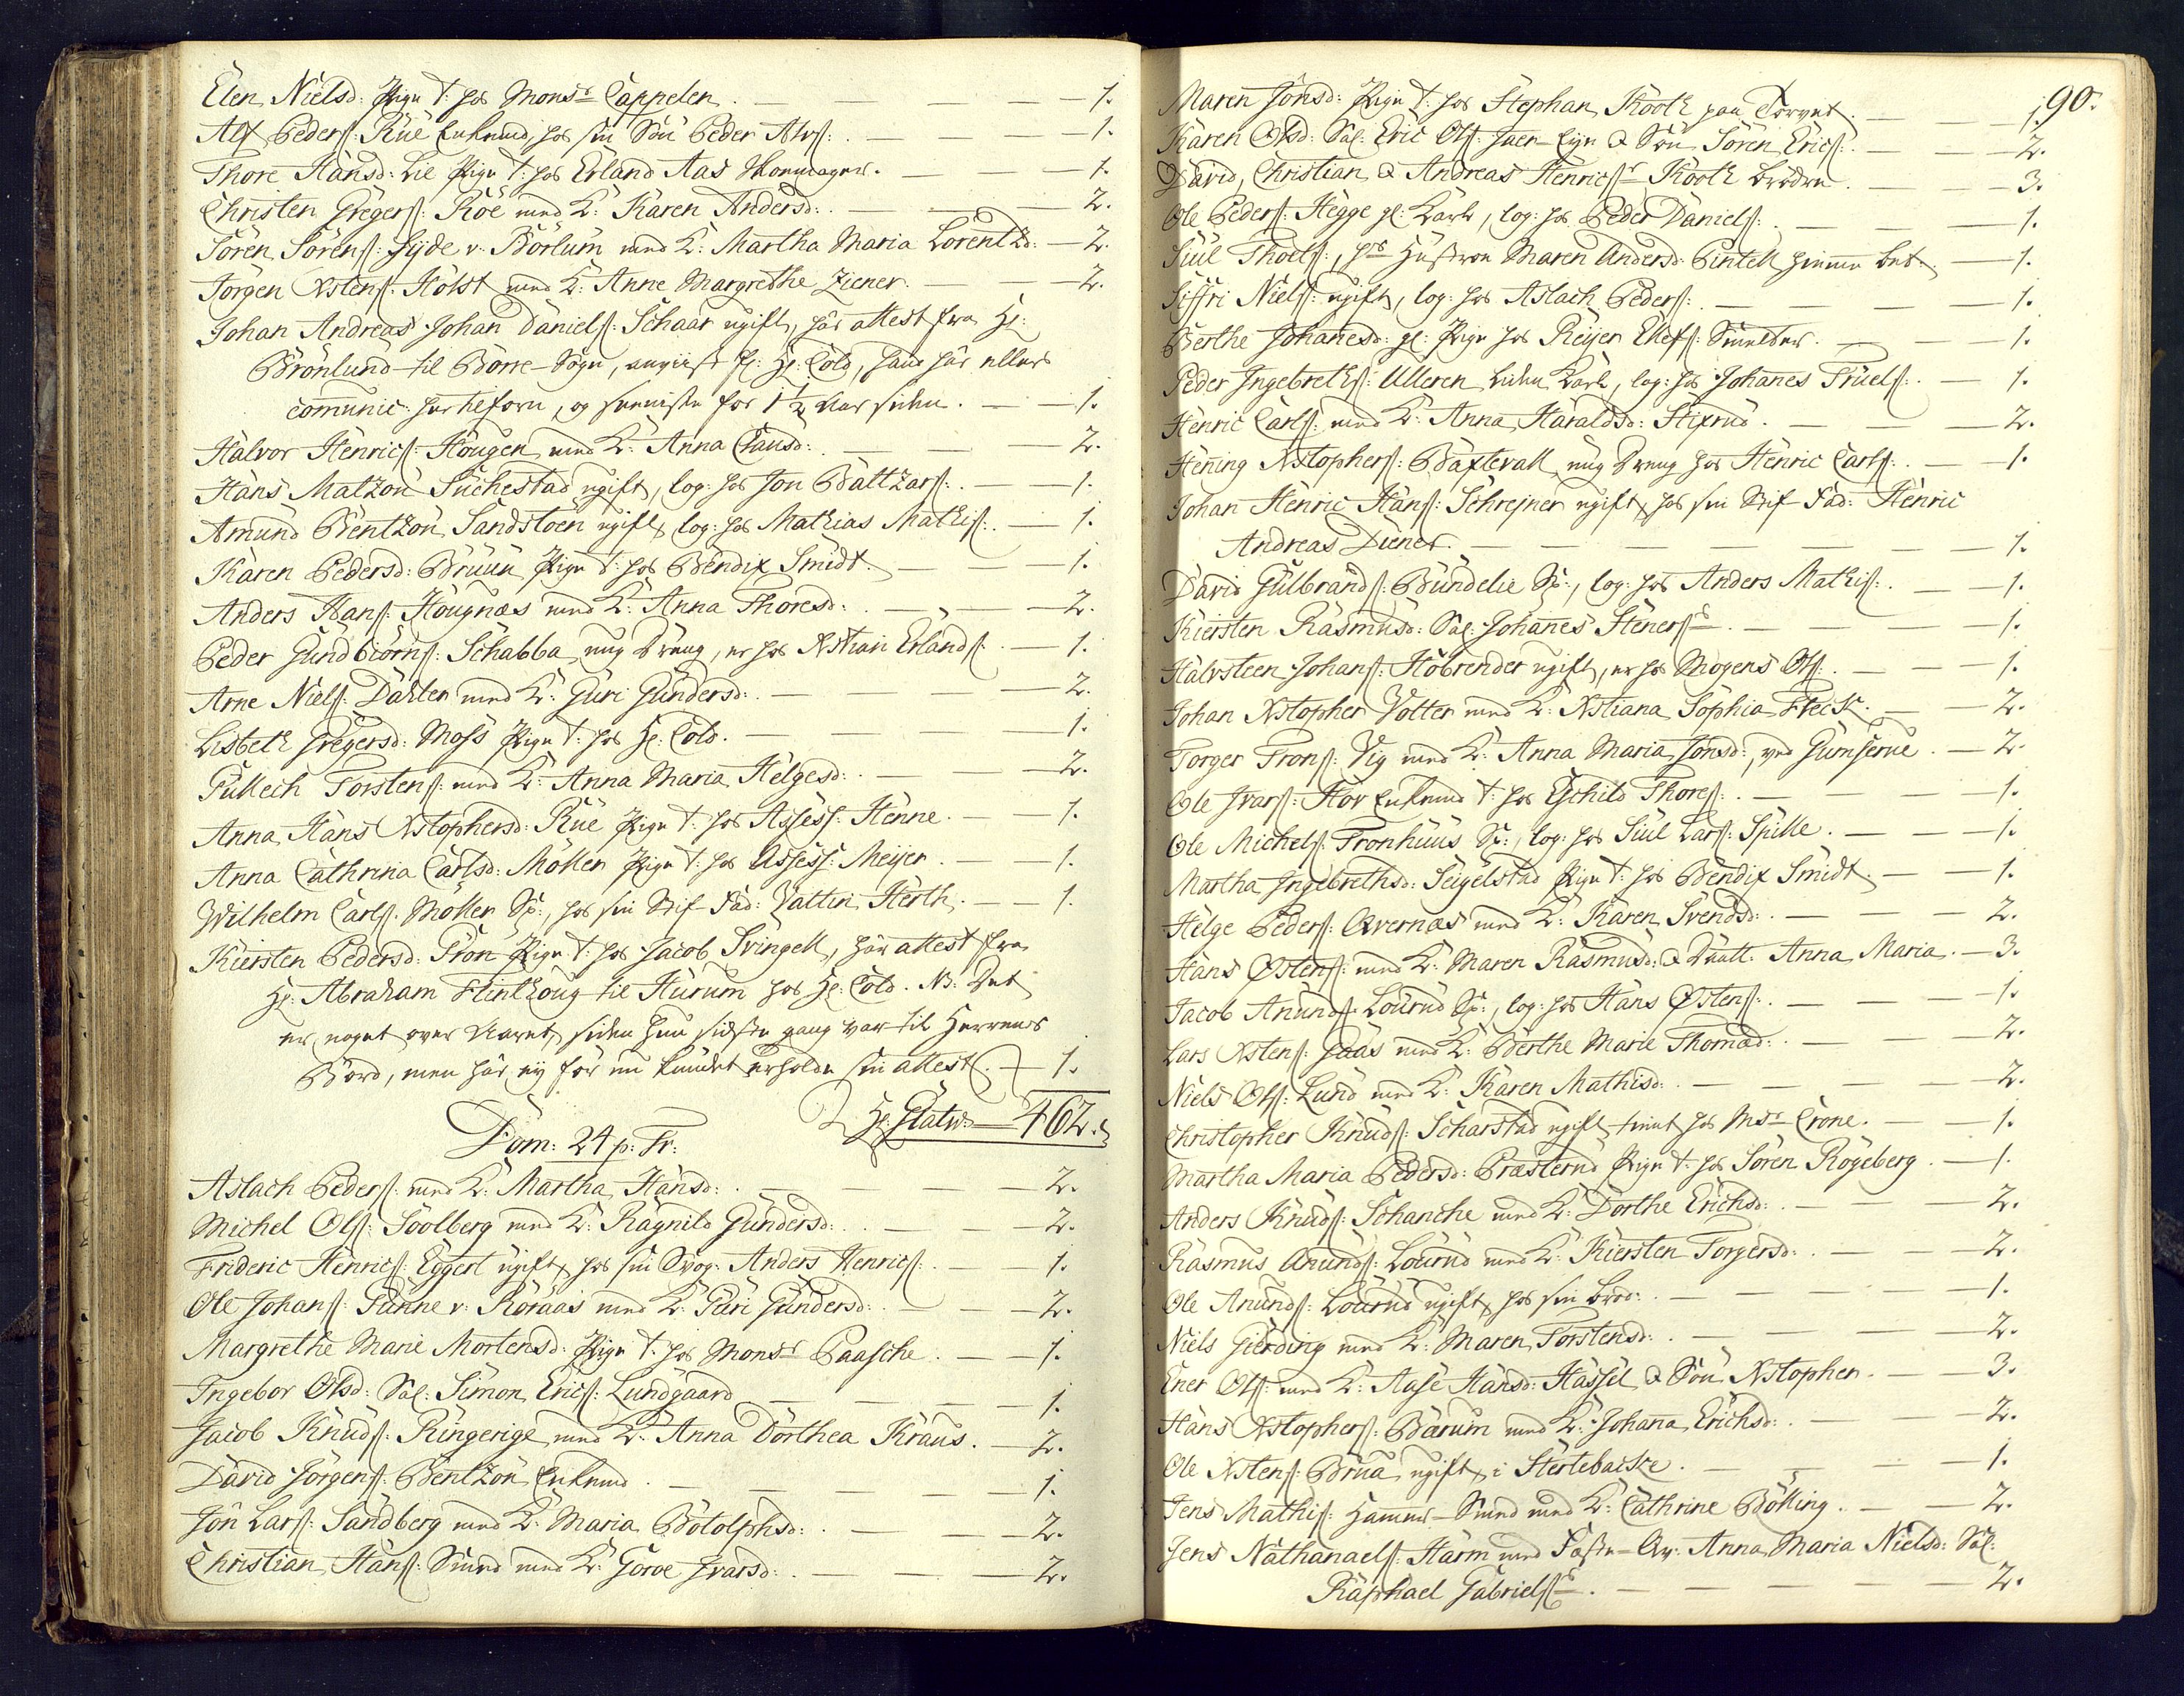 Elen Nielsd: Pige t: hos Monsr Cappelen. — 1.
Alf Peders: Rüe Enkemd, hos sin Søn Peder Alvs: — 1.
Thore Hansd: Lie Pige t: hos Erland Aas — 1.
Christen Gregers: Roe med K: Karen Andersd: — 2.
Sören Sörens: Gyde v. Börlum med K: Martha Maria Lorentzd: — 2.
Jörgen Xstens: Holst med K: Anne Margrethe Ziener. — 2.
Johan Andreas Johan Daniels: Schaar ugift, har attest fra Hr:
Brönlund til Borre-Sogn, anviist fr: Hr: Cold, hand har ellers
comunic: her tilforn, og sremiste for 1½ Aar siden. — 1.
Halvor Henrics: Hougen med K: Anna Clausd: — 2.
Hans Matzon Suchestad ugift, log: hos Jon Baltzars: — 1.
Amund Bentzon Sandstöen ugift, log: hos Mathias Mathis: — 1.
Karen Pedersd: Bruun Pige t: hos Bendix Smidt. — 1.
Anders Hans: Hougnæs med K: Anna Thoresd: — 2.
Peder Gundbiörns: Schabba, ung Dreng, er hos Xstian Erlands: — 1.
Arne Niels: Dahlen med K: Guri Gundersd: — 2.
Lisbeth Gregersd: Moss Pige t: hos Hr: Cold. — 1.
Tullech Torstens: med K: Anna Maria Helgesd: — 2.
Anna Hans Xstophersd: Rüe Pige t: hos Assess: Henne. — 1.
Anna Cathrina Carlsd: Möller Pige t: hos Assess: Meijer. — 1.
Wilhelm Carls: Möller Sp:, hos sin Stif-Fad: Vattin Herth. — 1.
Kiersten Pedersd: Tron Pige t: hos Jacob Svingell, har attest fra
Hr: Abraham Flinthoug til Hurum hos Hr: Cold. NB: Det
er noget over Aaret, siden hun sidste gang var til Herrens
Bord, men har ey før nu kundet erholde sin attest. — 1.
Hr: — 462.
Dom: 24 p: Tr:
Aslach Peders: med K: Martha Hansd: — 2.
Michel Ols: Soolberg med K: Ragnild Gundersd: — 2.
Frideric Henrics: Eggert ugift, hos sin Svog: Anders Henrics: — 1.
Ole Johans: Tanne v: Röraas med K: Guri Gundersd: — 2.
Margrethe Marie Mortensd: Pige t: hos Monsr Paasche. — 1.
Ingebor Olsd: Sal: Simon Erics: Lundgaard — 1.
Jacob Knuds: Ringerige med K: Anna Dorthea Kraus. — 2.
David Jörgens: Bentzon Enkemd. — 1.
Jon Lars: Sandberg med K: Maria Botolphsd: — 2.
Christian Hans: Smed med K: Goroe Ivarsd: — 2.
90.
Maren Jonsd: Pige t: hos Stephan Kooth paa Torvet. — 1.
Karen Olsd: Sal: Eric Ols: Jaer-Eye & Søn Sören Erics: — 2.
David, Christian & Andreas Henricsr Kooth brödre. — 3.
Ole Peders: Hegge gl: Karl, log: hos Peder Daniels: — 1.
Siul Thoels:, hs Hustroe Maren Andersd: Pintell hiemme bet. — 1.
Siffri Niels: ugift, log: hos Aslach Peders: — 1.
Berthe Johanesd: gl: Pige hos Reijer Elefs: Smelter. — 1.
Peder Ingebreths: Ulleren liden Karl, log: hos Johanes Truels: — 1.
Henric Carls: med K: Anna Haraldsd: Stixrud. — 2.
Hening Xstophers: Baxtevall ung Dreng hos Henric Carls: — 1.
Johan Henric Hans: Schrejner ugift, hos sin Stif-Fad: Henric
Andreas Diener. — 1.
David Gulbrands: Bundelie Sp:, log: hos Anders Mathis: — 1.
Kiersten Rasmusd: Sal: Johanes Steners — 1.
Halvsteen Johans: Höbrender ugift, er hos Mogens Ols: — 1.
Johan Xstopher Votter med K: Xstiana Sophia Fleisc. — 2.
Torger Trons: Vig med K: Anna Maria Jonsd:, ved Gumserue. — 2.
Ole Ivars: Hov Enkemd t: hos Eschild Thores: — 1.
Ole Michels: Tronhuus Sp:, log: hos Siul Lars: Spille. — 1.
Martha Ingebrethsd: Seigelstad Pige t: hos Bendix Smidt. — 1.
Helge Peders: Qvernæs med K: Karen Svendsd: — 2.
Hans Östens: med K: Maren Rasmusd: & Datt: Anna Maria. — 3.
Jacob Anunds: Lourud Sp:, log: hos Hans Östens: — 1.
Lars Xstens: Haas med K: Berthe Marie Thomæd: — 2.
Niels Ols: Lund med K: Karen Mathisd: — 2.
Christopher Knuds: Scharstad ugift tient hos Msr Crone. — 1.
Martha Maria Pedersd: Præsterud Pige t: hos Sören Rögeberg. — 1.
Anders Knuds: Schanche med K: Dorthe Erichsd: — 2.
Rasmus Anunds: Lourud med K: Kiersten Torgersd: — 2.
Ole Anunds: Lourud ugift, hos sin brod: — 1.
Niels Gierding med K: Maren Torstensd: — 2.
Ener Ols: med K: Aase Hansd: Hassel & Søn Xstopher. — 3.
Hans Xstophers: Bærum med K: Johana Erichsd: — 2.
Ole Xstens: Brua ugift, i Stertebacke. — 1.
Jens Mathis: Hammer-Smed med K: Cathrine Bölling. — 2.
Jens Nathanaels: Harm med Fæste-Qv: Anna Maria Nielsd: Sal:
Raphael Gabriels — 2.